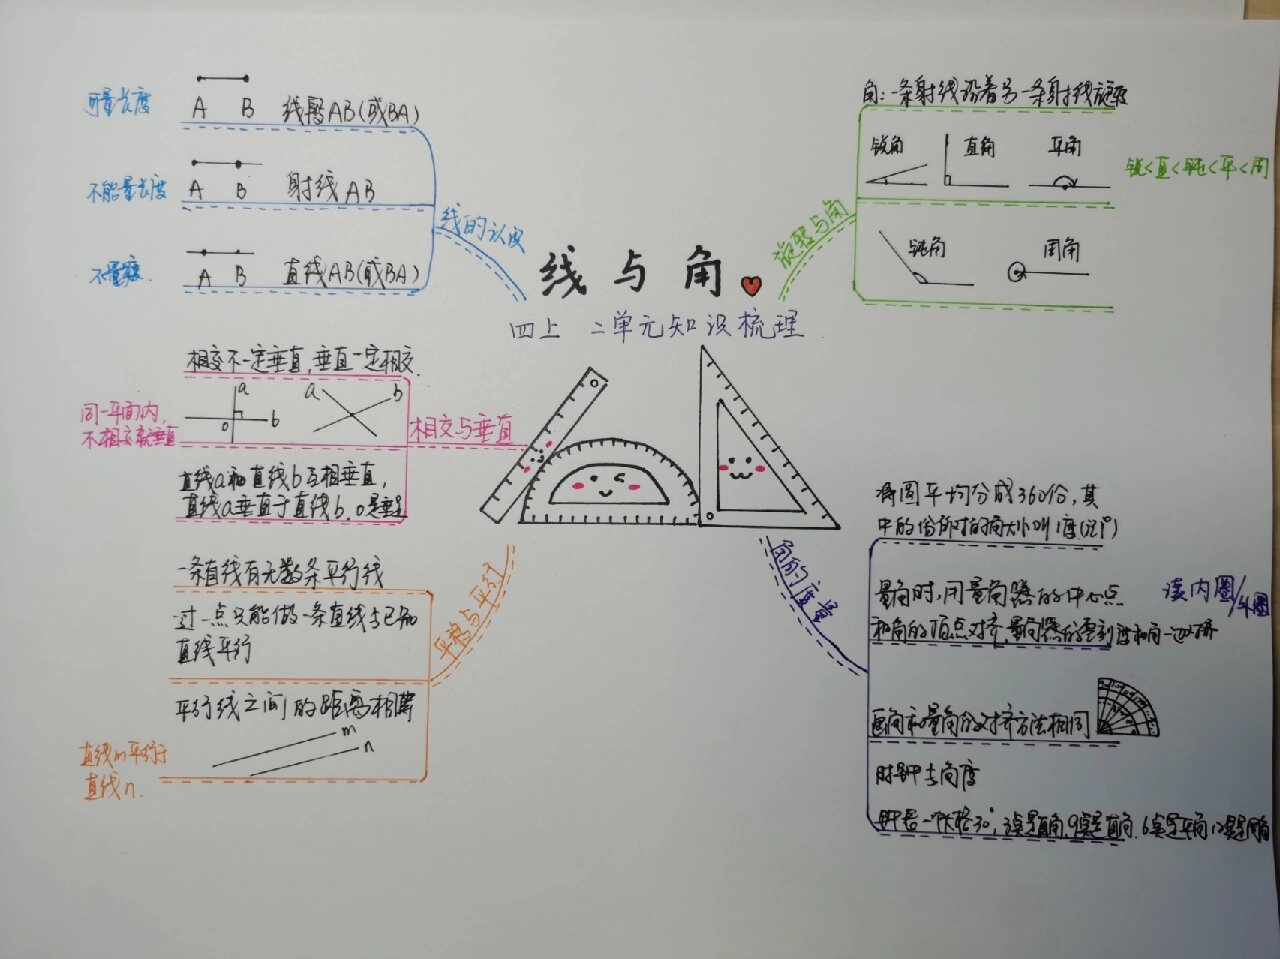 线与角
四上 二单元知识梳理
线的认识
可量长度
A B 线段AB(或BA)
不能量长度
A B 射线AB
A B 直线AB(或BA)
相交与垂直
相交不一定垂直,垂直一定相交.
a
b
o
a
b
同一平面内,
不相交就垂直
直线a和直线b互相垂直,
直线a垂直于直线b,o是垂足
平移与平行
一条直线有无数条平行线
过一点只能做一条直线与已知
直线平行
平行线之间的距离相等
m
n
直线m平行于
直线n.
旋转与角
角:一条射线沿着另一条射线旋转
锐角 直角 平角
锐<直<钝<平<周
钝角 周角
角的度量
将圆平均分成360份,其
中的1份所对的角大小叫1度(记1°)
量角时,用量角器的中心点
和角的顶点对齐,量角器的零刻度和角一边对齐
读内圈/外圈
画角和量角的对齐方法相同
时钟与角度
钟表一大格30°,3点是直角,9点是直角,6点是平角,12点是周角